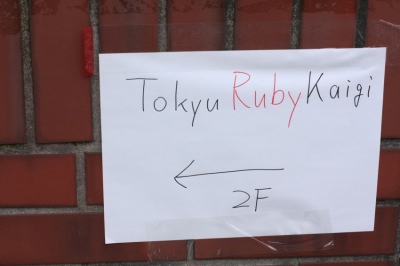 Tokyu RubyKaigi
←
2F